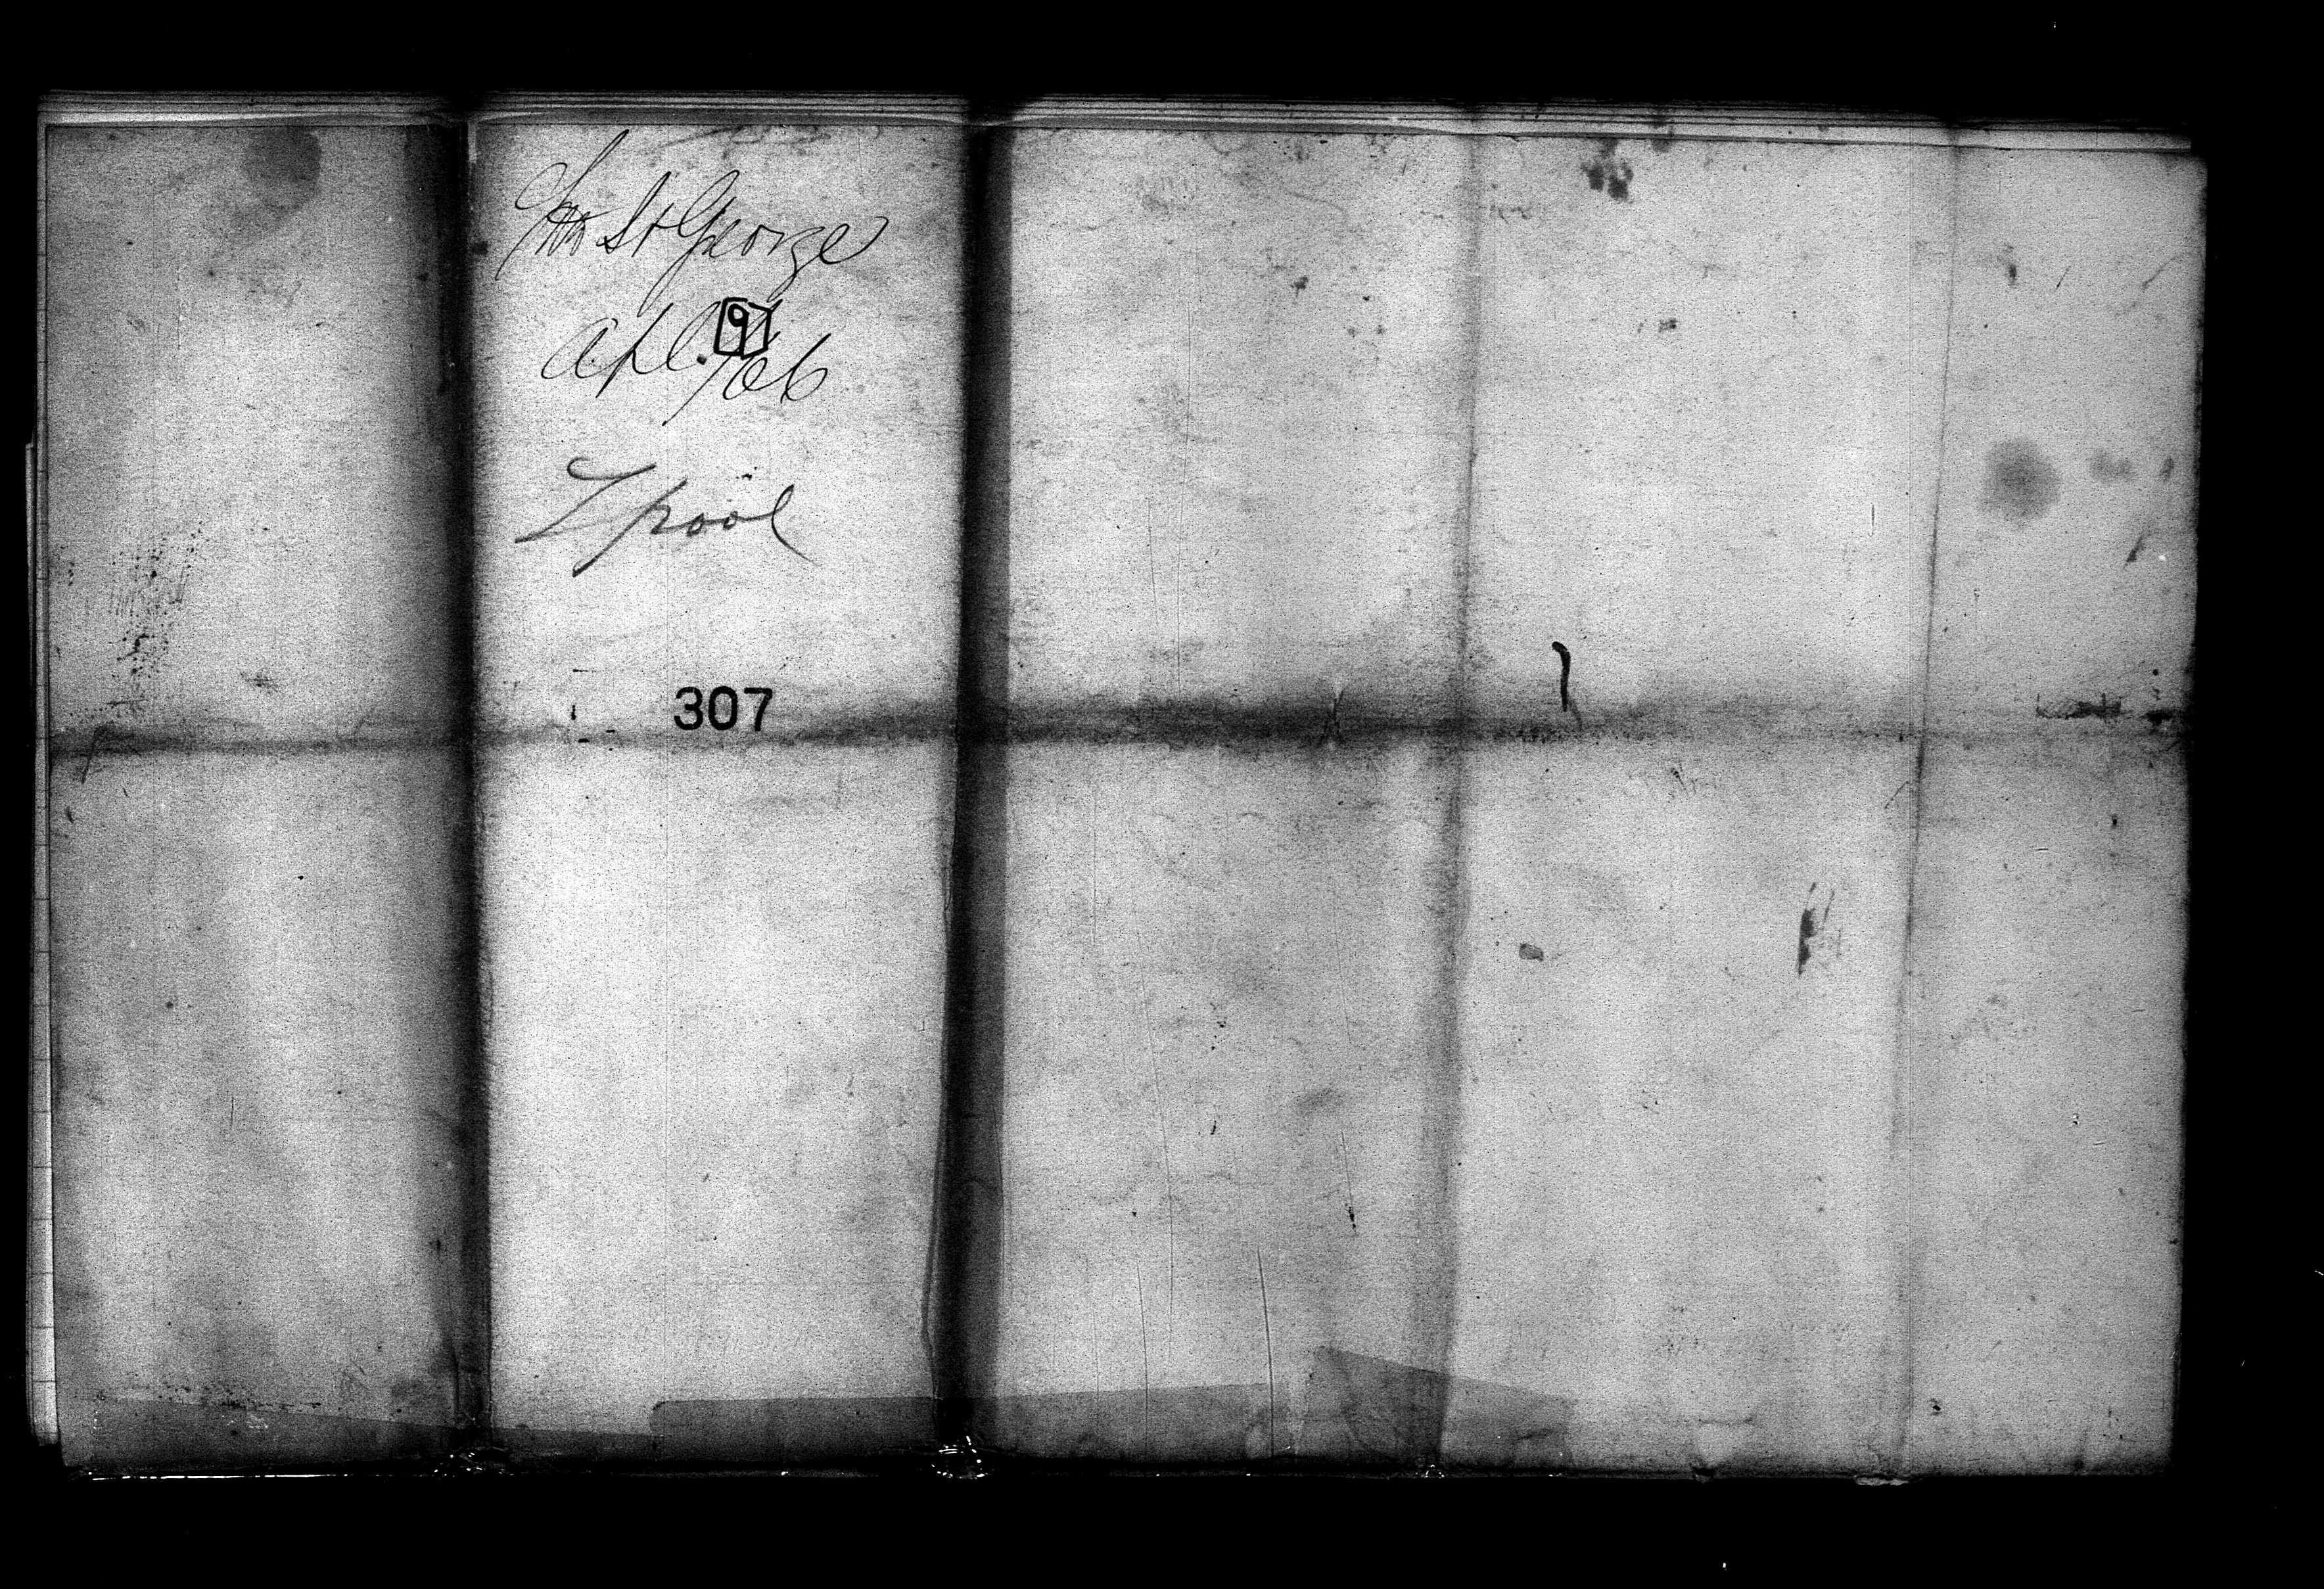 St George
Apl. 9/06
L'pool
307